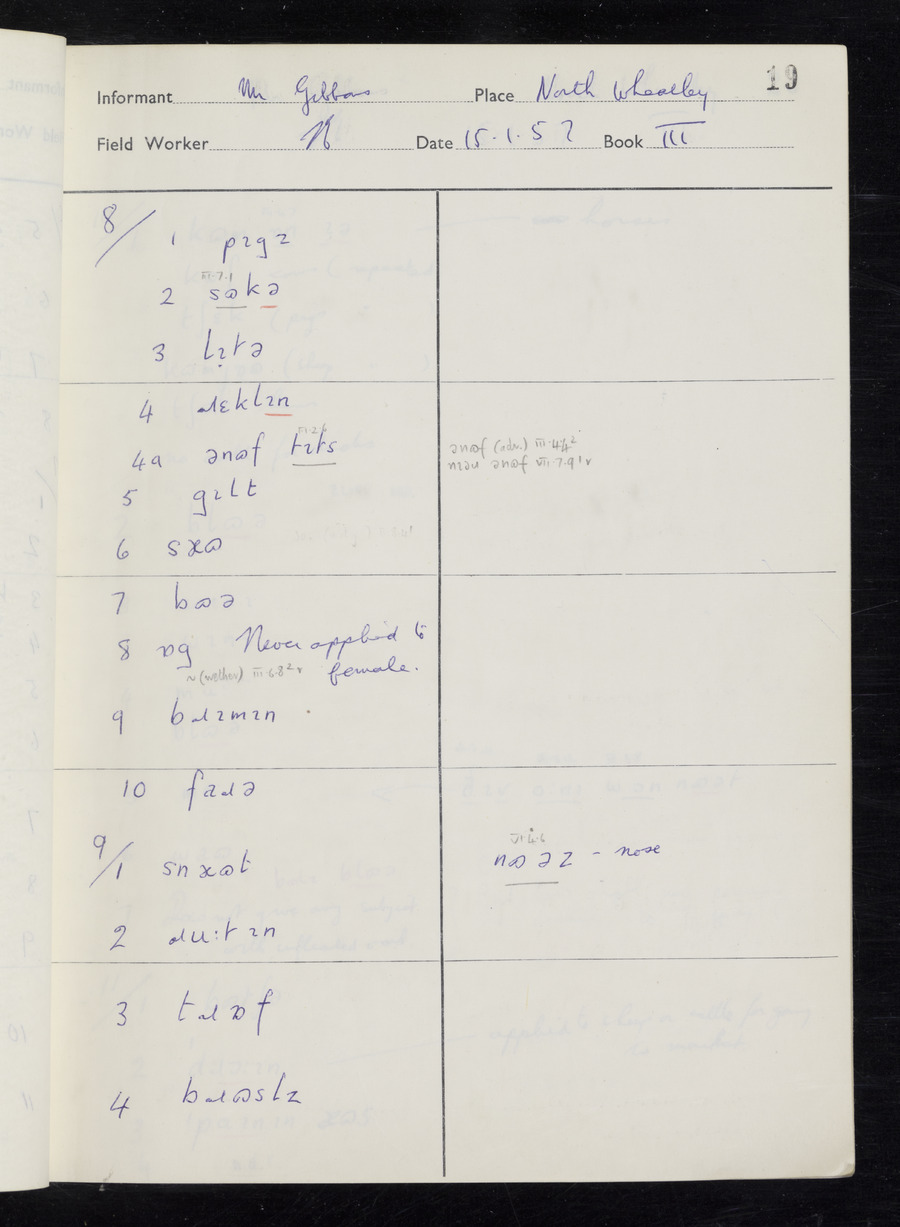 19
Informant Mr Gibbons Place North Wheatley
Field Worker N Date 15.1.57 Book III
8/ 1 pɪgz
III.7.1
2 sɷkə
3 lɪtə
4 ɹɛklɪn
4a ənɷf tɪts
ənɷf (adv.) III.4.4²
ənɷf VII.7.9¹v
5 gɪlt
6 saɷ
7 bɷə
8 ɒg Never applied to
female.
~ (wether) III.6.8²v
9 bɹɪmɪn
10 faɹə
9/1 snaɷt
VI.4.6
nɷəz - nose
2 ɹu:tɪn
3 tɹɒf
4 bɹɷslz